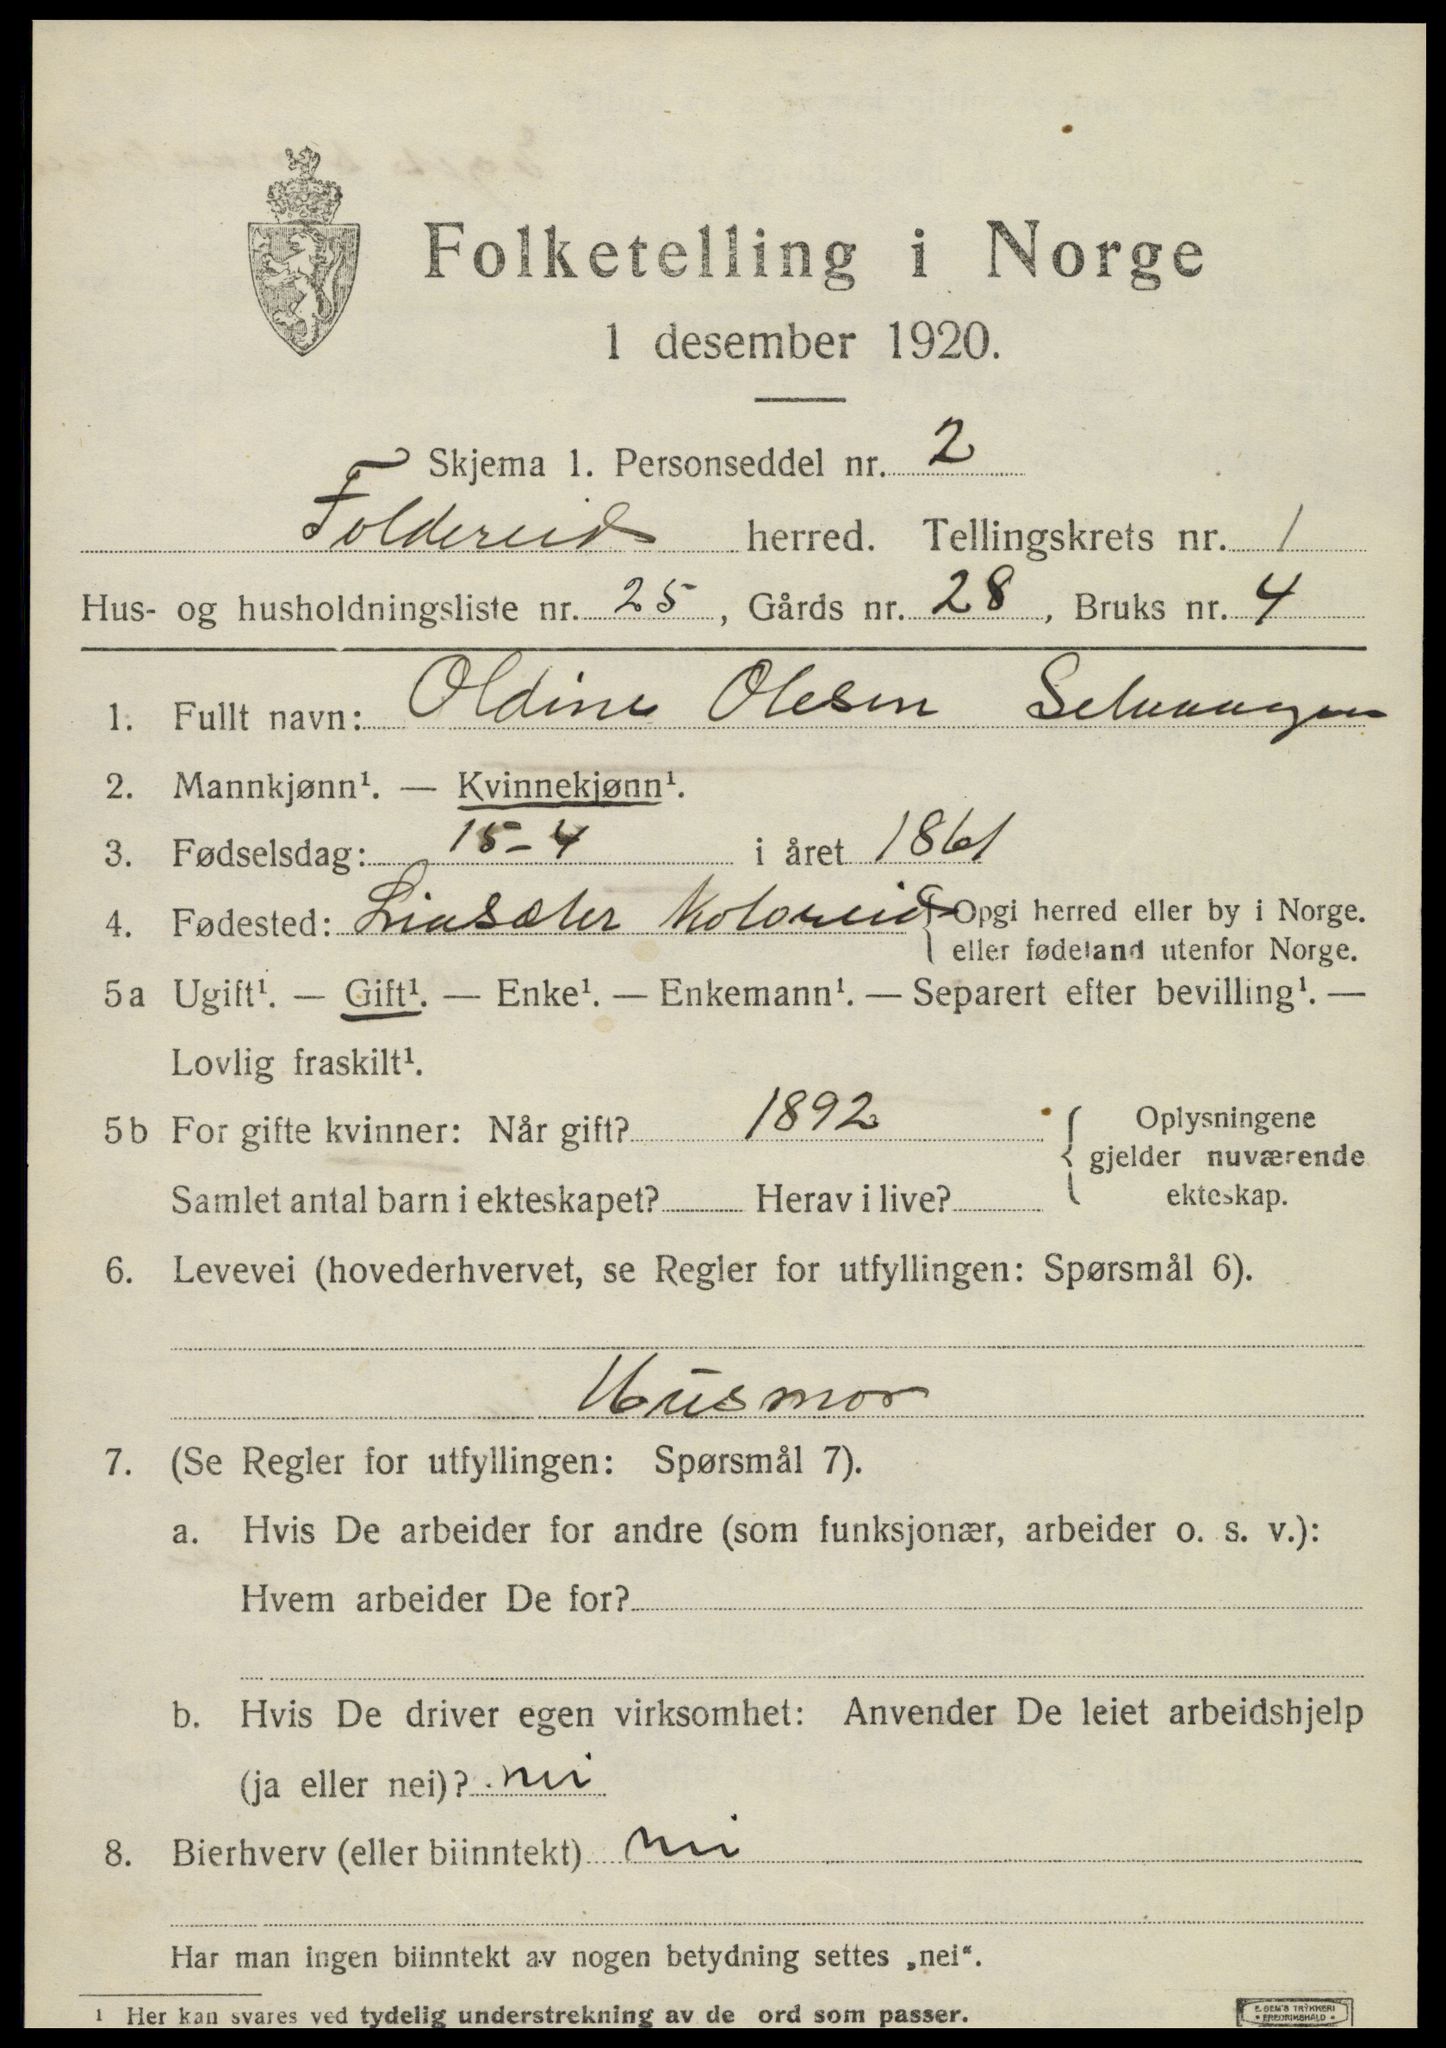 Folketelling i Norge
1 desember 1920.
Skjema 1. Personseddel nr. 2
Foldereid herred. Tellingskrets nr. 1
Hus- og husholdningsliste nr. 25, Gårds nr. 28, Bruks nr. 4
1. Fullt navn: Oldine Olesen
2. Mannkjønn¹. — Kvinnekjønn¹.
3. Fødselsdag: 15-4 i året 1861
4. Fødested: { Opgi herred eller by i Norge.
eller fødeland utenfor Norge.
5a Ugift¹. — Gift¹. — Enke¹. — Enkemann¹. — Separert efter bevilling¹. —
Lovlig fraskilt¹.
5b For gifte kvinner: Når gift? 1892 { Oplysningene
gjelder nuværende
Samlet antal barn i ekteskapet? Herav i live? ekteskap.
6. Levevei (hovederhvervet, se Regler for utfyllingen: Spørsmål 6).
Husmor
7. (Se Regler for utfyllingen: Spørsmål 7).
a. Hvis De arbeider for andre (som funksjonær, arbeider o. s. v.):
Hvem arbeider De for?
b. Hvis De driver egen virksomhet: Anvender De leiet arbeidshjelp
(ja eller nei)? nei
8. Bierhverv (eller biinntekt) nei
Har man ingen biinntekt av nogen betydning settes „nei“.
¹ Her kan svares ved tydelig understrekning av de ord som passer.
E. SEM'S TRYKKERI
FREDRIKSHALD